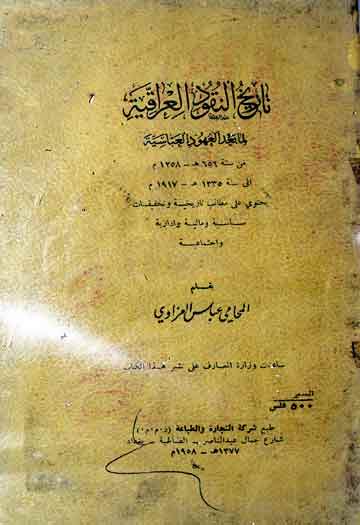 تاريخ النقود العراقية
لما بعد العهود العباسية
من سنة ٦٥٦ هـ - ١٢٥٨ م
الى سنة ١٣٣٥ هـ - ١٩١٧ م
يحتوي على مطالب تاريخية وتحقيقات
سياسية ومالية وإدارية
واجتماعية
بقلم
المحامي عباس العزاوي
ساعدت وزارة المعارف على نشر هذا الكتاب
السعر
٥٠٠ فلس
طبع شركة التجارة والطباعة (ذ٠م٠م٠)
شارع جمال عبدالناصر - الصالحية - بغداد
١٣٧٧هـ - ١٩٥٨م